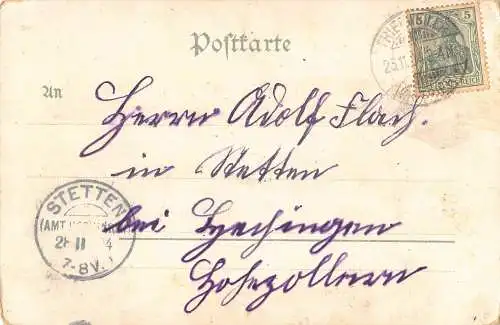 Postkarte
5
An
Herrn Adolf Flach.
in Stetten
bei Hechingen
Hohezollern
STETTEN
(AMT
7-8V.